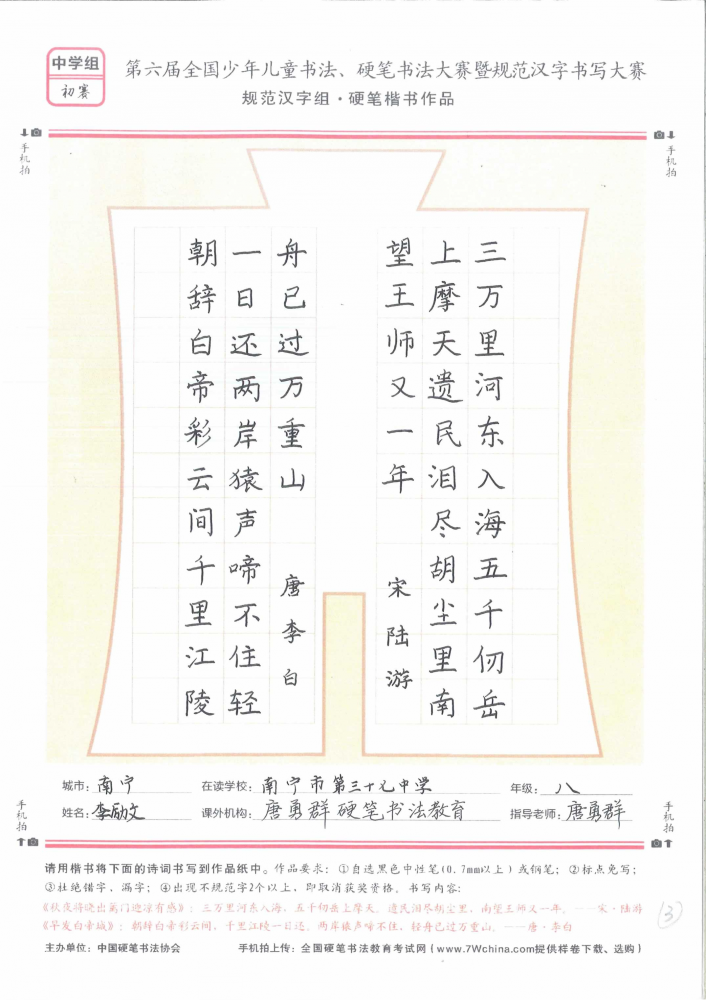 中学组
初赛
第六届全国少年儿童书法、硬笔书法大赛暨规范汉字书写大赛
规范汉字组·硬笔楷书作品
手机拍
手机拍
三万里河东入海五千仞岳
上摩天遗民泪尽胡尘里南
望王师又一年 宋陆游
朝辞白帝彩云间千里江陵
一日还两岸猿声啼不住轻
舟已过万重山 唐李白
城市：南宁 在读学校：南宁市第三十九中学 年级：八
姓名：李励文 课外机构：唐勇群硬笔书法教育 指导老师：唐勇群
手机拍
手机拍
请用楷书将下面的诗词书写到作品纸中。作品要求：①自选黑色中性笔(0.7mm以上)或钢笔；②标点免写；
③杜绝错字、漏字；④出现不规范字2个以上，即取消获奖资格。书写内容：
《秋夜将晓出篱门迎凉有感》：三万里河东入海，五千仞岳上摩天。遗民泪尽胡尘里，南望王师又一年。——宋·陆游
《早发白帝城》：朝辞白帝彩云间，千里江陵一日还。两岸猿声啼不住，轻舟已过万重山。——唐·李白
③
主办单位：中国硬笔书法协会 手机拍上传：全国硬笔书法教育考试网（www.7Wchina.com提供样卷下载、选购）